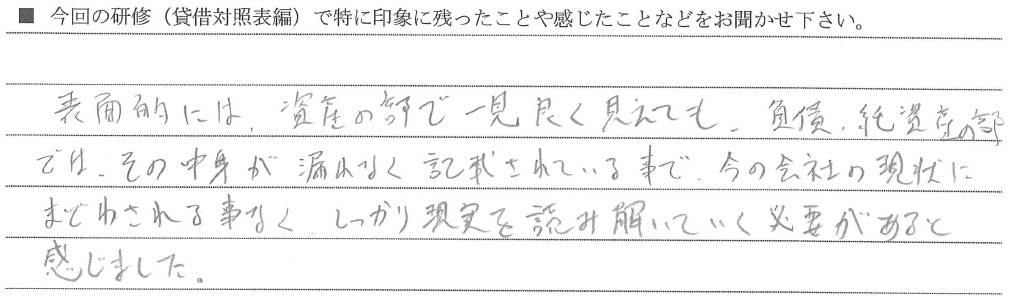 ■ 今回の研修（貸借対照表編）で特に印象に残ったことや感じたことなどをお聞かせ下さい。
表面的には、資産の部で一見良く見えても、負債、純資産の部
では、その中身が漏れなく記載されている事で、今の会社の現状に
まどわされる事なく、しっかり現実を読み解いていく必要があると
感じました。